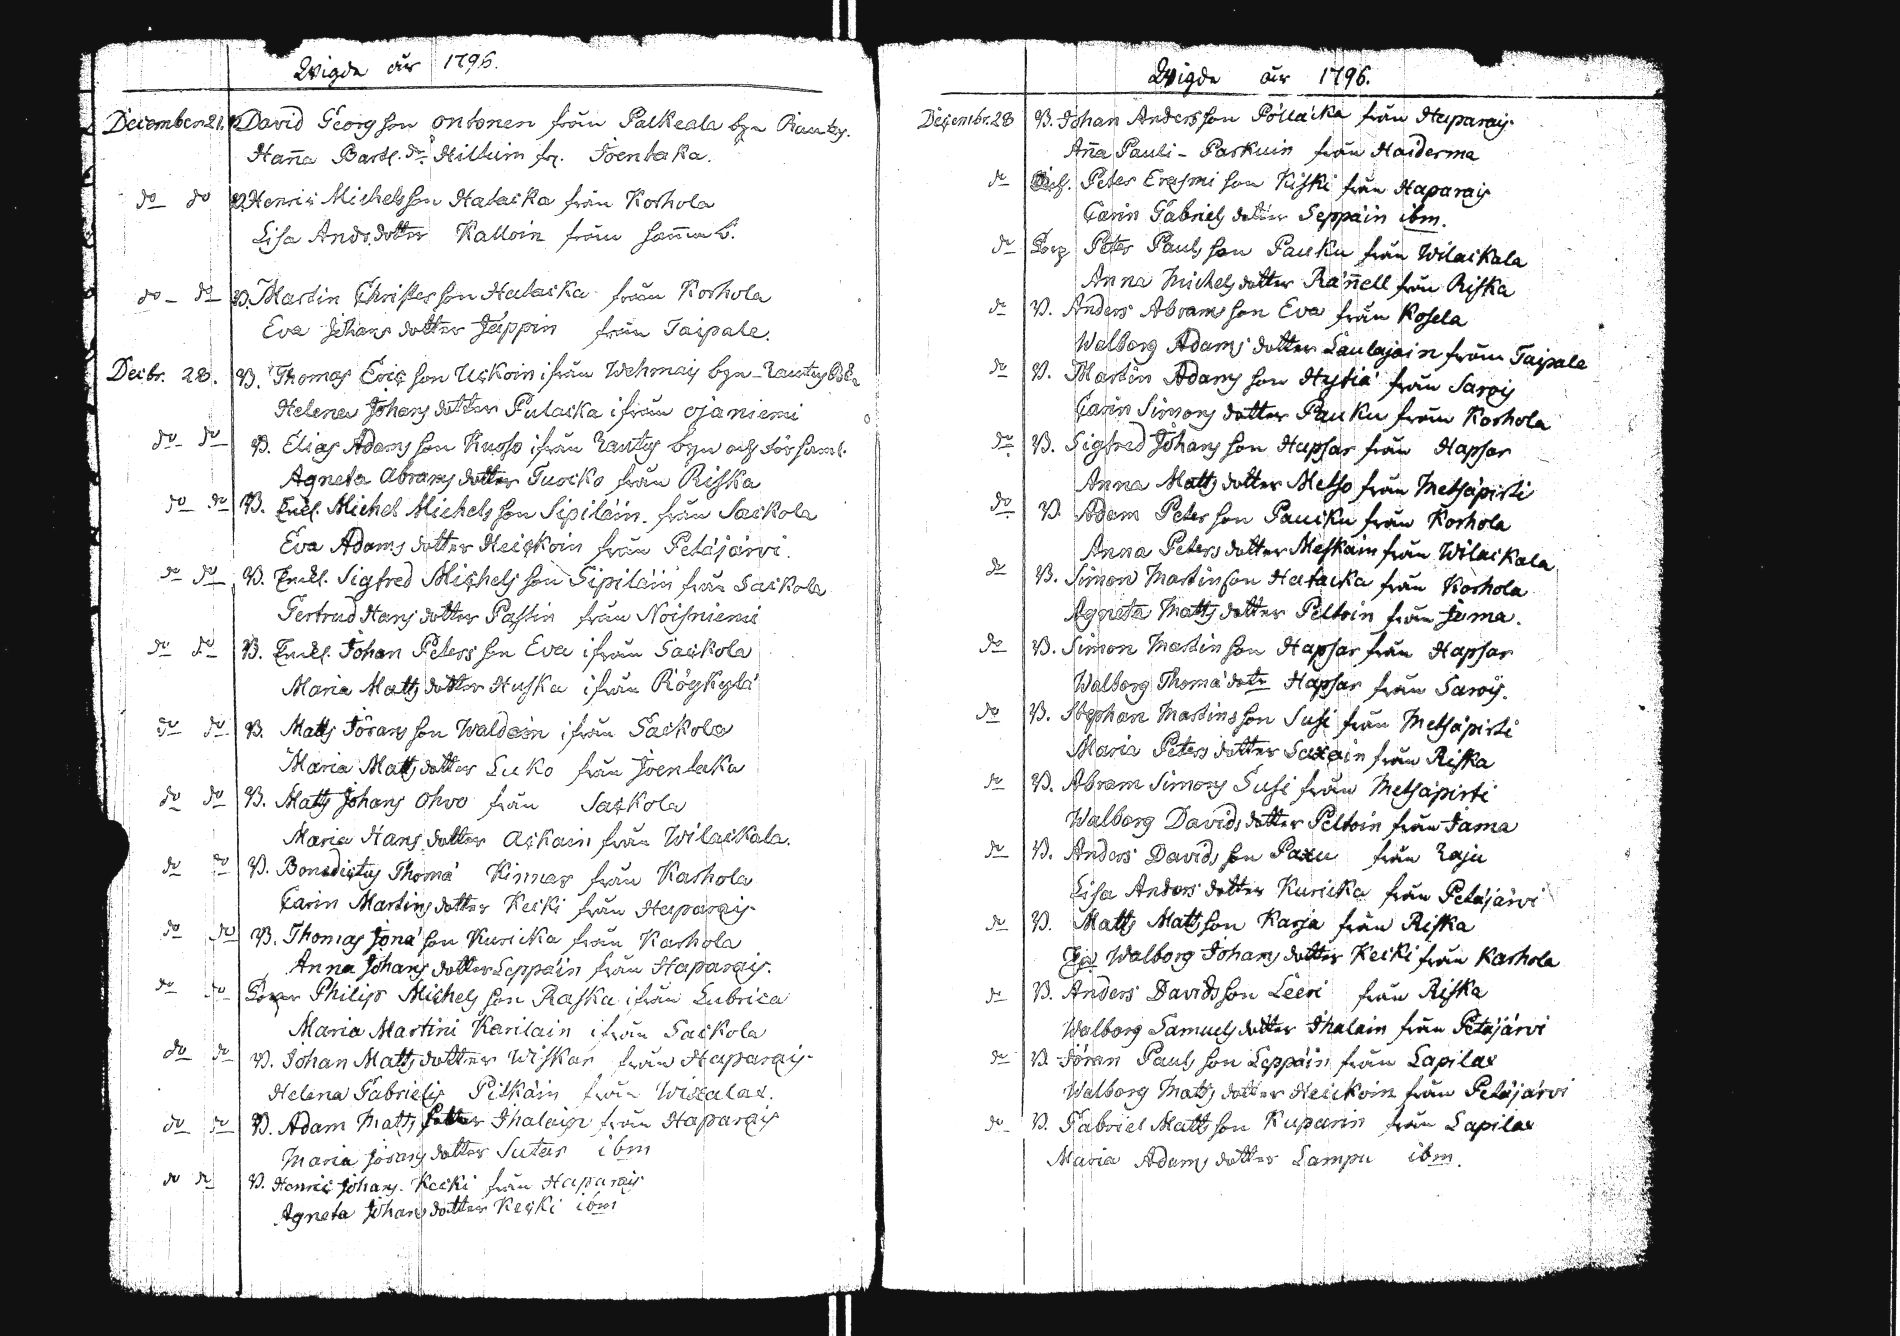 Wigde år 1796.
December 21. V. David Georg son Ontonen från Palkeala byn Rautus.
Hanna Bartl. dr. Hiltuin fr. Joentaka.
do do V. Henric Michelsson Hatacka från Korhola
Lisa Andr. dotter Kalloin från samma b.
do do V. Martin Christer son Hatacka från Korhola
Eva Johans dotter Jäppin från Taipale.
Decbr. 28. V. Thomas Eric son Uskoin ifrån Wehmais byn Rautus
Helena Johans dotter Pulacka ifrån Ojaniemi
do do V. Elias Adams son Kusso ifrån Rautus byn och församl.
Agneta Abrams dotter Turcko från Riska
do do V. Enkl. Michel Michels son Sipiläin från Sackola
Eva Adams dotter Heickoin från Petäjärvi.
do do V. Enkl. Sigfred Michels son Sipiläin från Sackola
Gertrud Hans dotter Passin från Noisniemi
do do V. Enkl. Johan Peters son Eva ifrån Sackola
Maria Matts dotter Huska ifrån Röykylä
do do V. Matts Jörans son Waldain ifrån Sackola
Maria Matts dotter Luko från Joentaka
do do V. Matts Johans Ohvo från Sackola
Maria Hans dotter Ackain från Wilackala.
do do V. Benedictus Thomä Kinnar från Karhola
Carin Martins dotter Kecki från Haparais
do do V. Thomas Jona son Kuricka från Karhola
Anna Johans dotter Leppäin från Haparais.
do do Philip Michels son Raska ifrån Lubrica
Maria Martini Karilain ifrån Sackola
do do V. Johan Matts dotter Wiskar från Haparais
Helena Gabrielis Pitkäin från
do do V. Adam Matts Ihalain från Haparais
Maria Jörans dotter Sutar ibm
do do V. Henric Johans. Kecki från Haparais
Agneta Johans dotter Kecki ibm
Wigde år 1796.
Decembr. 28 V. Johan Anders son Pölläcka från Haparais
Anna Pauli Paskuin från Haiderma
do Peter Erasmi son Kiski från Haparais
Carin Gabriels dotter Seppäin ibm.
do Peter Pauls son Pauku från Wilackala
Anna Michels dotter Ränell från Riska
do V. Anders Abrams son Eva från Kosela
Walborg Adams dotter Laulajain från Taipale
do V. Martin Adams son Hytiä från Sarois
Carin Simons dotter Pauku från Korhola
do V. Sigfred Johans son Hapsar från Hapsar
Anna Matts dotter Metso från Metsäpirti
do V. Adam Peter son Paucku från Korhola
Anna Peters dotter Meskäin från Wilackala
do V. Simon Martinson Hatacka från Korhola
Agneta Matts dotter Peltoin från Jama.
do V. Simon Martin son Hapsar från Hapsar
Walborg Thomä dotr Hapsar från Sarois.
do V. Stephan Martins son Susi från Metsäpirti
Maria Peters dotter Saxain från Riska
do V. Abram Simons Susi från Metsäpirti
Walborg Davids dotter Peltoin från Jama
do V. Anders Davids son Paxu från Raju
Lisa Anders dotter Kuricka från Petäjärvi
do V. Matts Matts son Karja från Riska
Walborg Johans dotter Kecki från Karhola
do V. Anders Davids son Leeri från Riska
Walborg Samuels dotter Ihalain från Petäjärvi
do V. Jöran Pauls son Leppäin från Lapilax
Walborg Matts dotter Heickoin från Petäjärvi
do V. Gabriel Matts son Kuparin från Lapilax
Maria Adams dotter Lampu ibm.